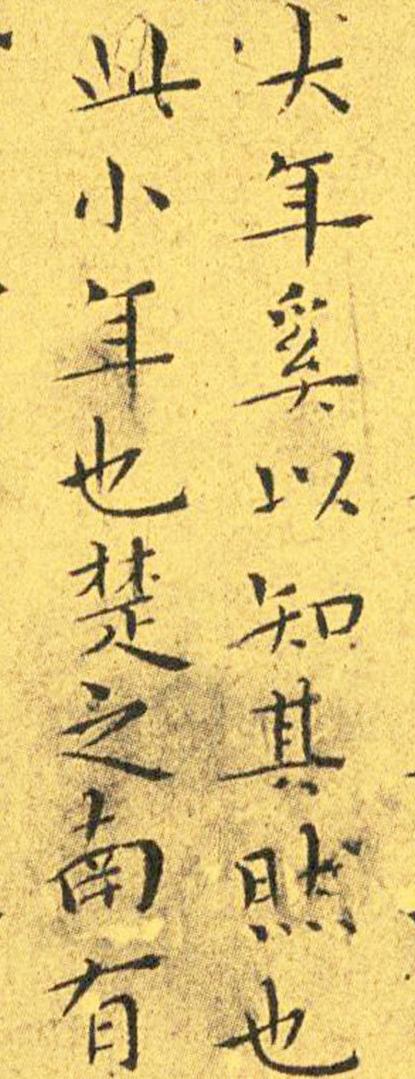 大年奚以知其然也
此小年也楚之南有